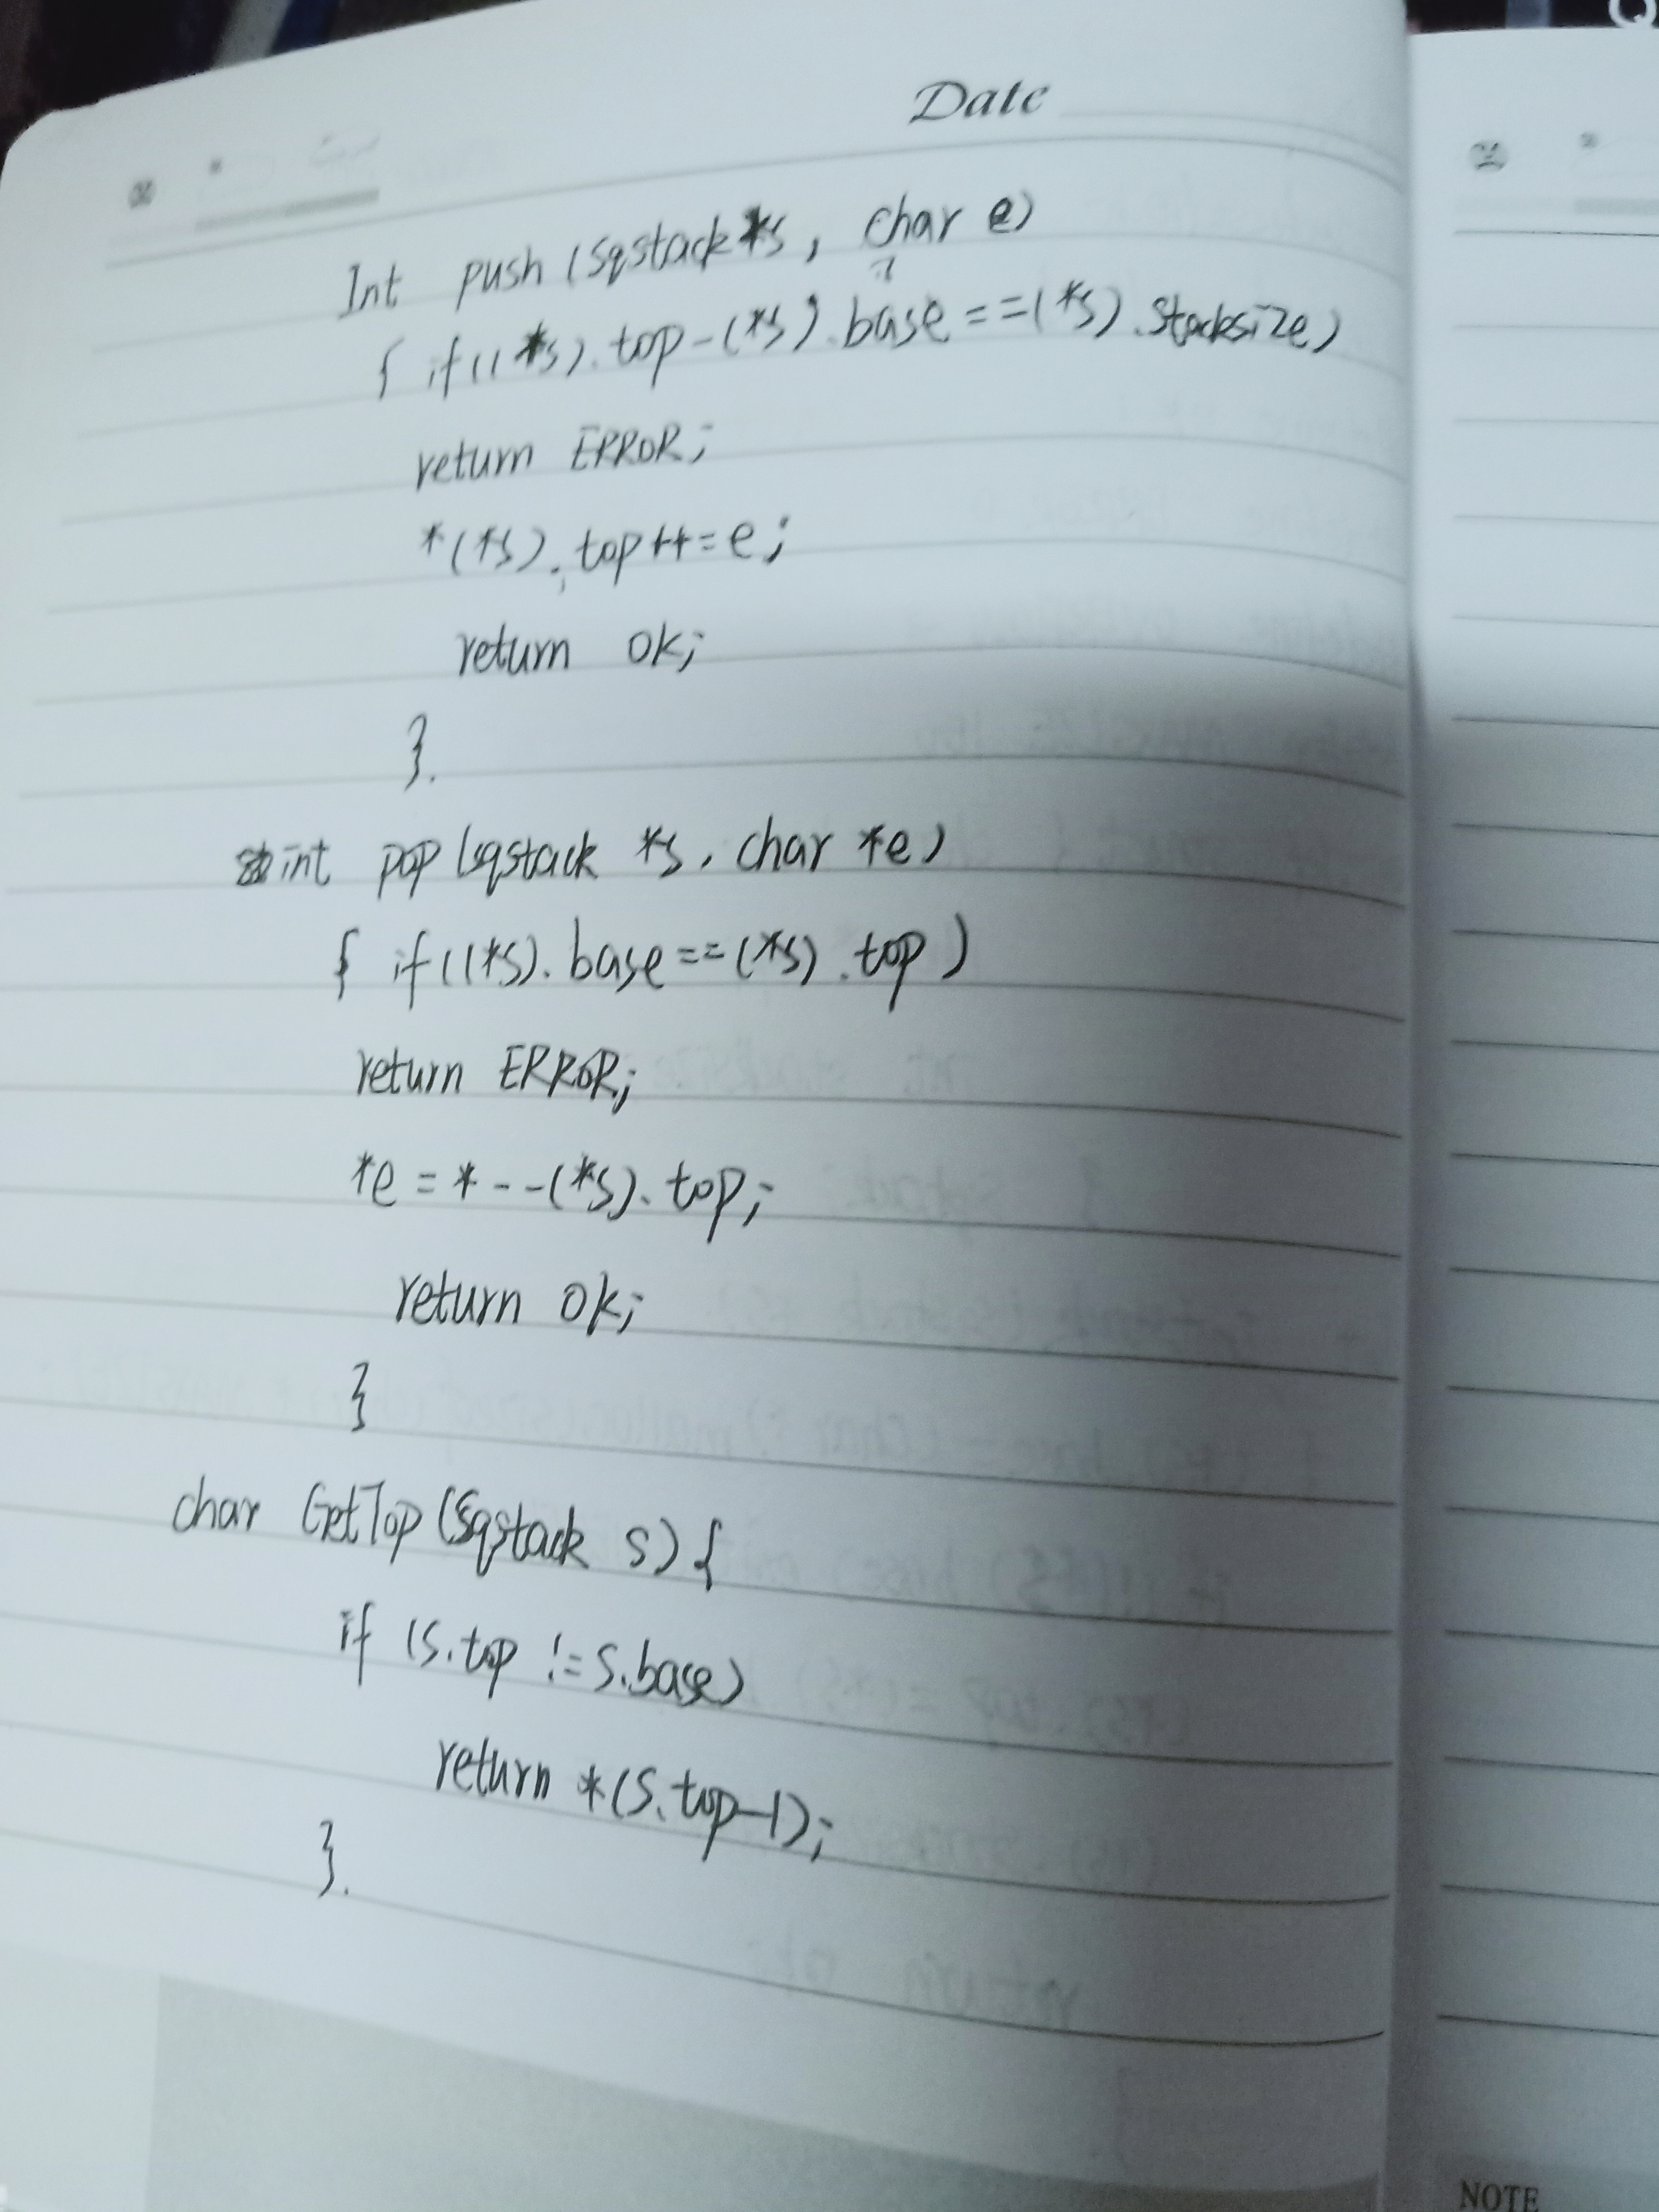 Date
Int push (Sqstack *s, char e)
{ if((*s).top-(*s).base==(*s).Stacksize)
return ERROR;
*(*s).top++=e;
return ok;
}.
int pop (sqstack *s, char *e)
{ if((*s).base==(*s).top)
return ERROR;
*e=*--(*s).top;
return ok;
}
char GetTop (Sqstack s){
if (s.top !=s.base)
return *(s.top-1);
}.
NOTE